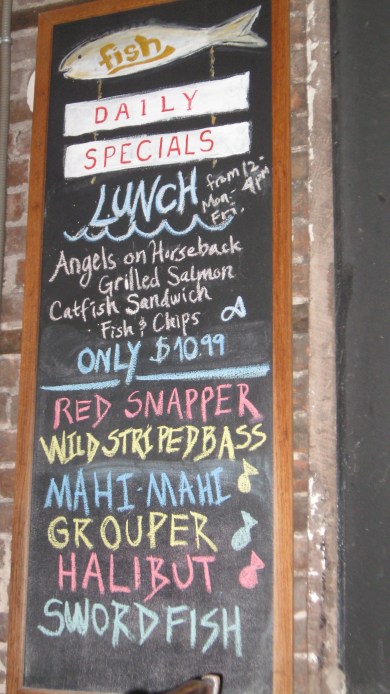 fish
DAILY
SPECIALS
LUNCH from 12-4pm
Mon-Fri
Angels on Horseback
Grilled Salmon
Catfish Sandwich
Fish & Chips
ONLY $10.99
RED SNAPPER
WILD STRIPED BASS
MAHI-MAHI
GROUPER
HALIBUT
SWORDFISH